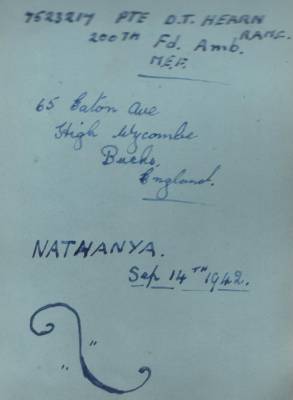 7523217 PTE D.T. HEARN
R.A.M.C.
200TH Fd. Amb.
M.E.F.
65 Eaton Ave
High Wycombe
Bucks,
England.
NATHANYA.
Sep 14TH 1942.